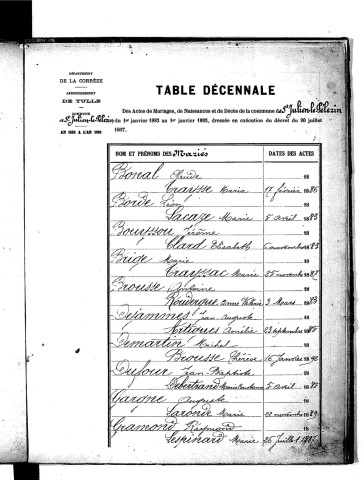 DÉPARTEMENT
DE LA CORRÈZE
ARRONDISSEMENT
DE TULLE
COMMUNE
de St Julien-le-Pèlerin
AN 1883 A L'AN 1893
TABLE DÉCENNALE
Des Actes de Mariages, de Naissances et de Décès de la commune de St Julien-le-Pèlerin
du 1er janvier 1883 au 1er janvier 1893, dressée en exécution du décret du 20 juillet
1807.
NOM ET PRÉNOMS DES Mariés DATES DES ACTES
Bonal Claude 18
Crayssac Maria 17 février 1886
Borde Léon 18
Lacaze Marie 5 avril 1883
Bouyssou Jérôme 18
Clard Elisabeth 6 novembre 1883
Brige Marie 18
Crayssac Marie 25 novembre 1887
Brousse Antoine 18
Roudergue Anne Valérie 3 Mars 1883
Delammes Jean Auguste 18
Amélie 23 septembre 1885
Demartin Michel 18
Brousse Thérèse 16 janvier 1892
Dufour Jean Baptiste 18
5 avril 18
Gargne Auguste 18
Laronde Marie 22 novembre 1889
Gramond Raymond 18
Lespinard Marie 26 juillet 188